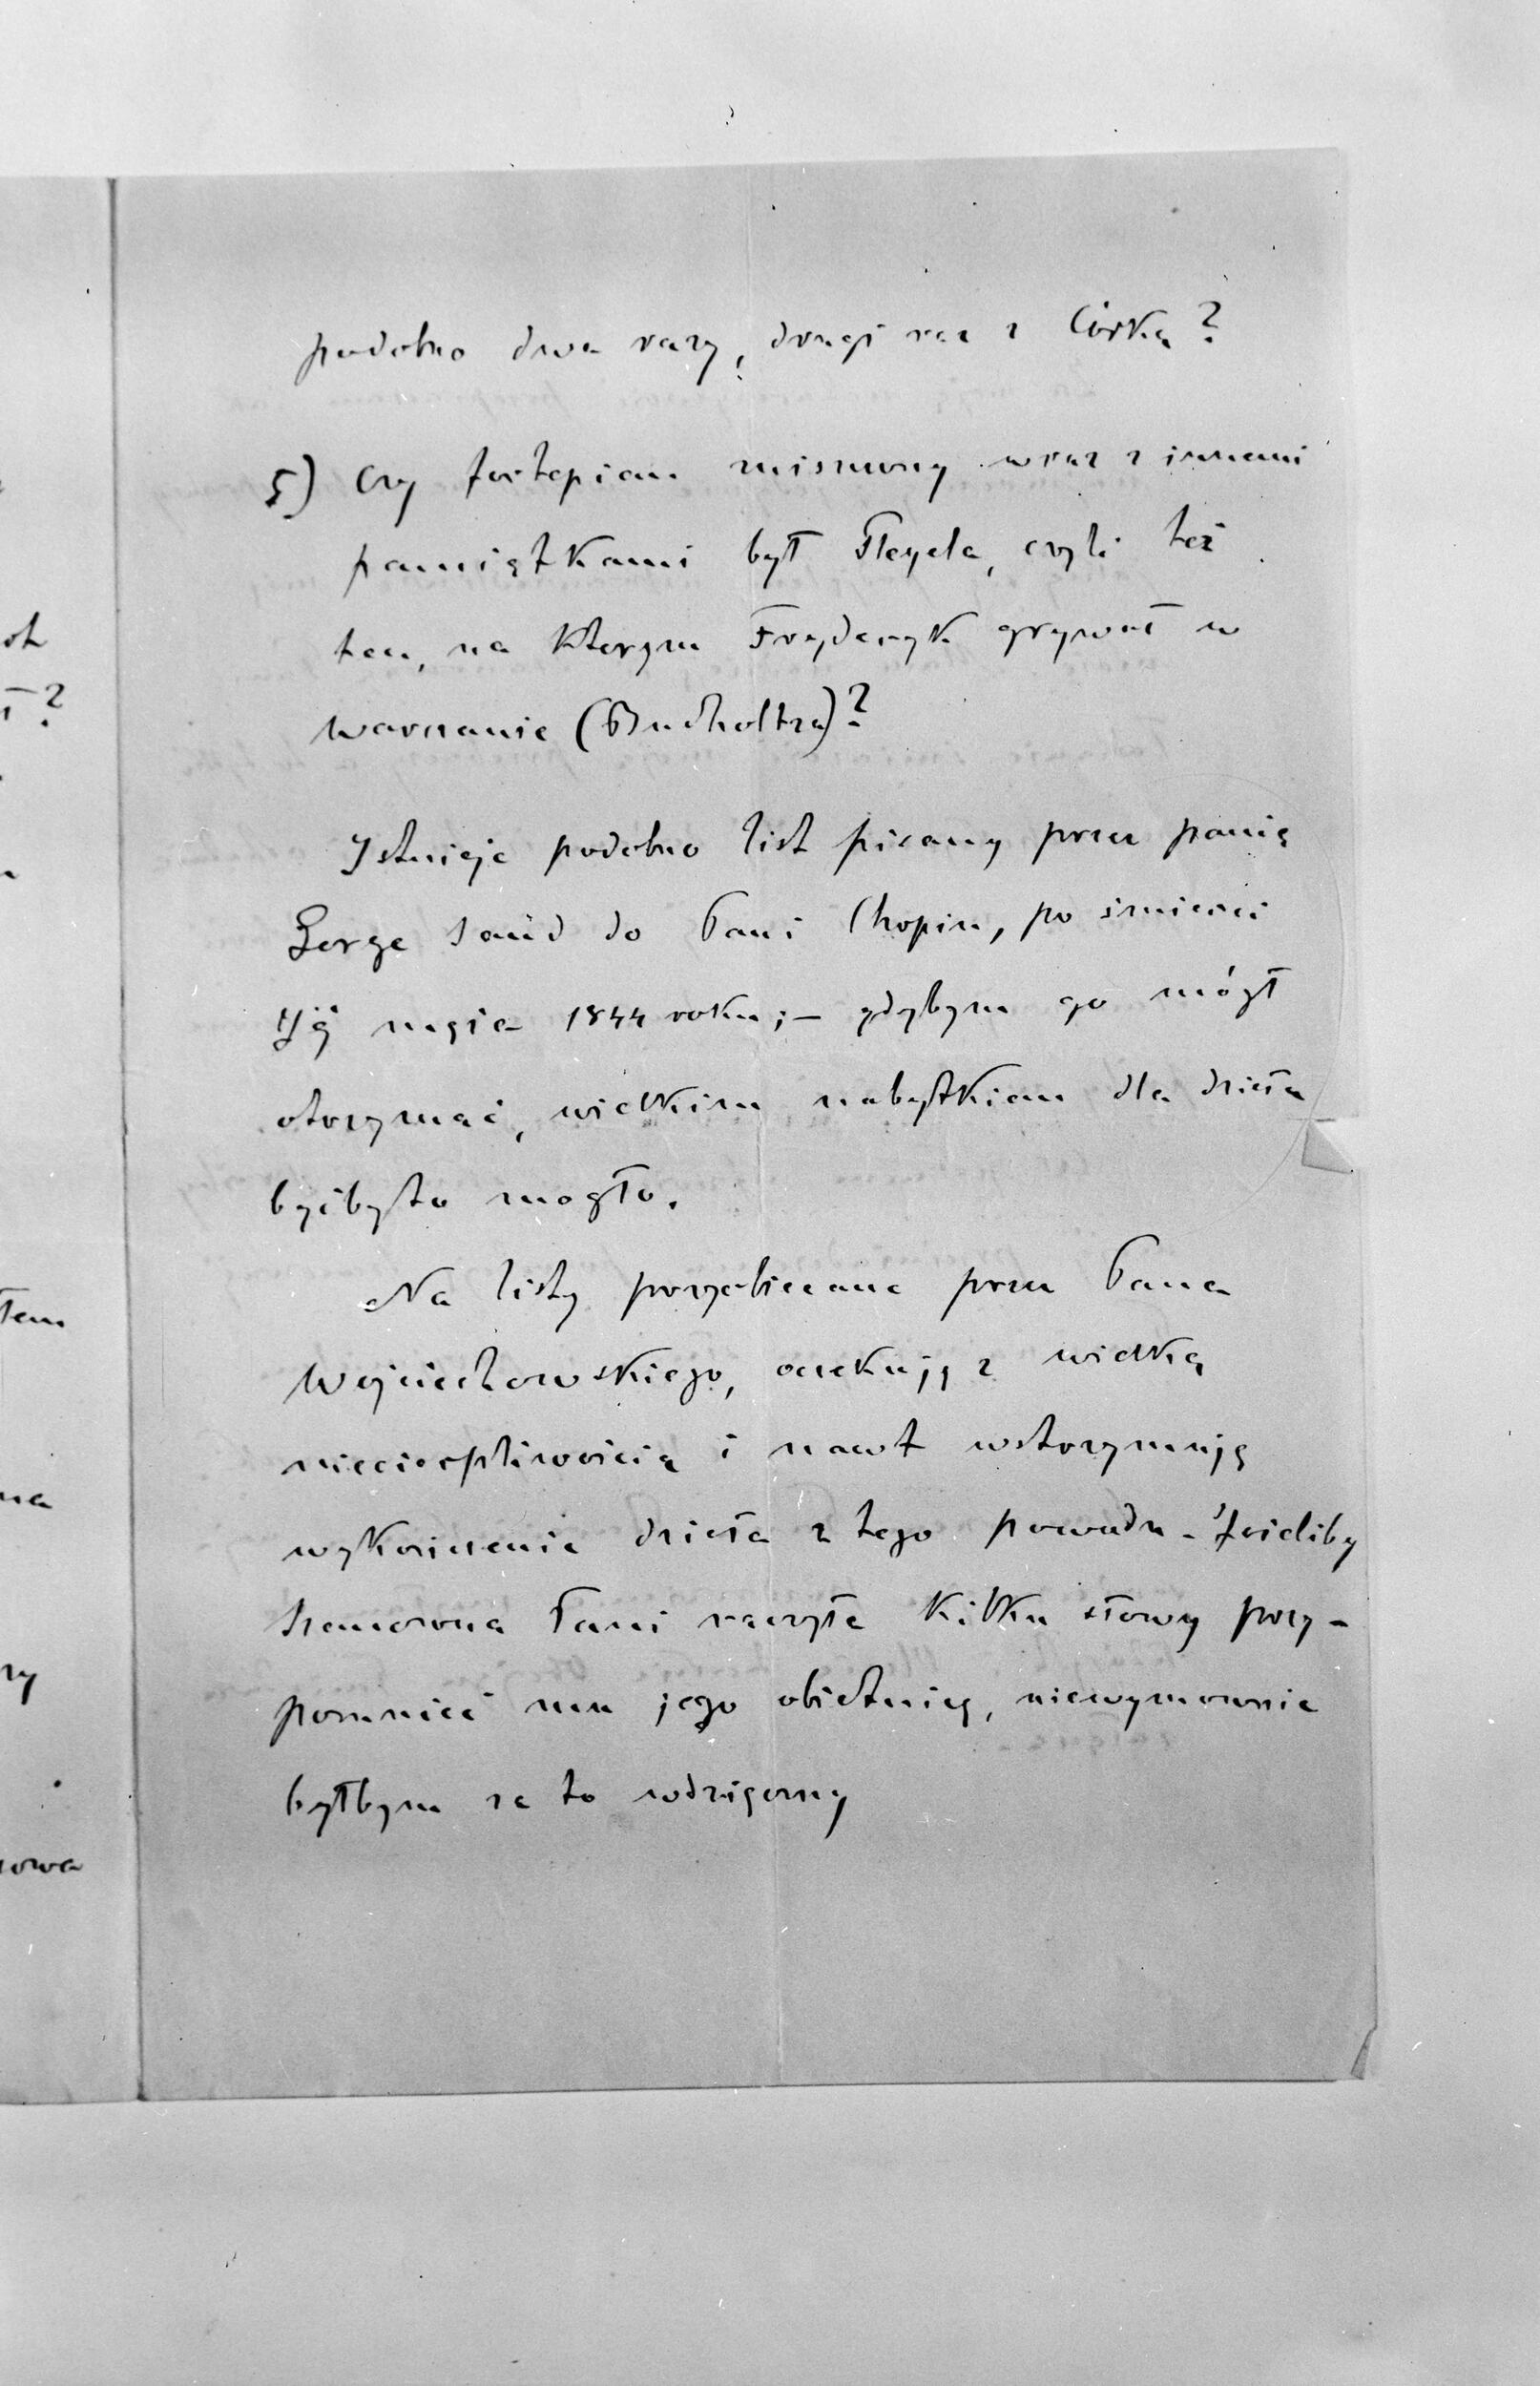 podobno dwa razy, drugi raz z Córką?
5) Czy fortepian zniszczony wraz z innemi
pamiątkami był Pleyela, czyli też
ten, na którym Fryderyk grywał w
Warszawie (Bucholtza)?
Istnieje podobno list pisany przez panią
George Sand do Pani Chopin, po śmierci
Jéj męża 1844 roku; – gdybym go mógł
otrzymać, wielkim nabytkiem dla dzieła
byćbyto mogło.
Na listy przyobiecane przez Pana
Wojciechowskiego, oczekuję z wielką
niecierpliwością i nawet wstrzymuję
wykończenie dzieła z tego powodu –
Szanowna Pani raczyła kilku słowy przy-
pomnieć mu jego obietnicę, niewymownie
byłbym za to wdzięczny